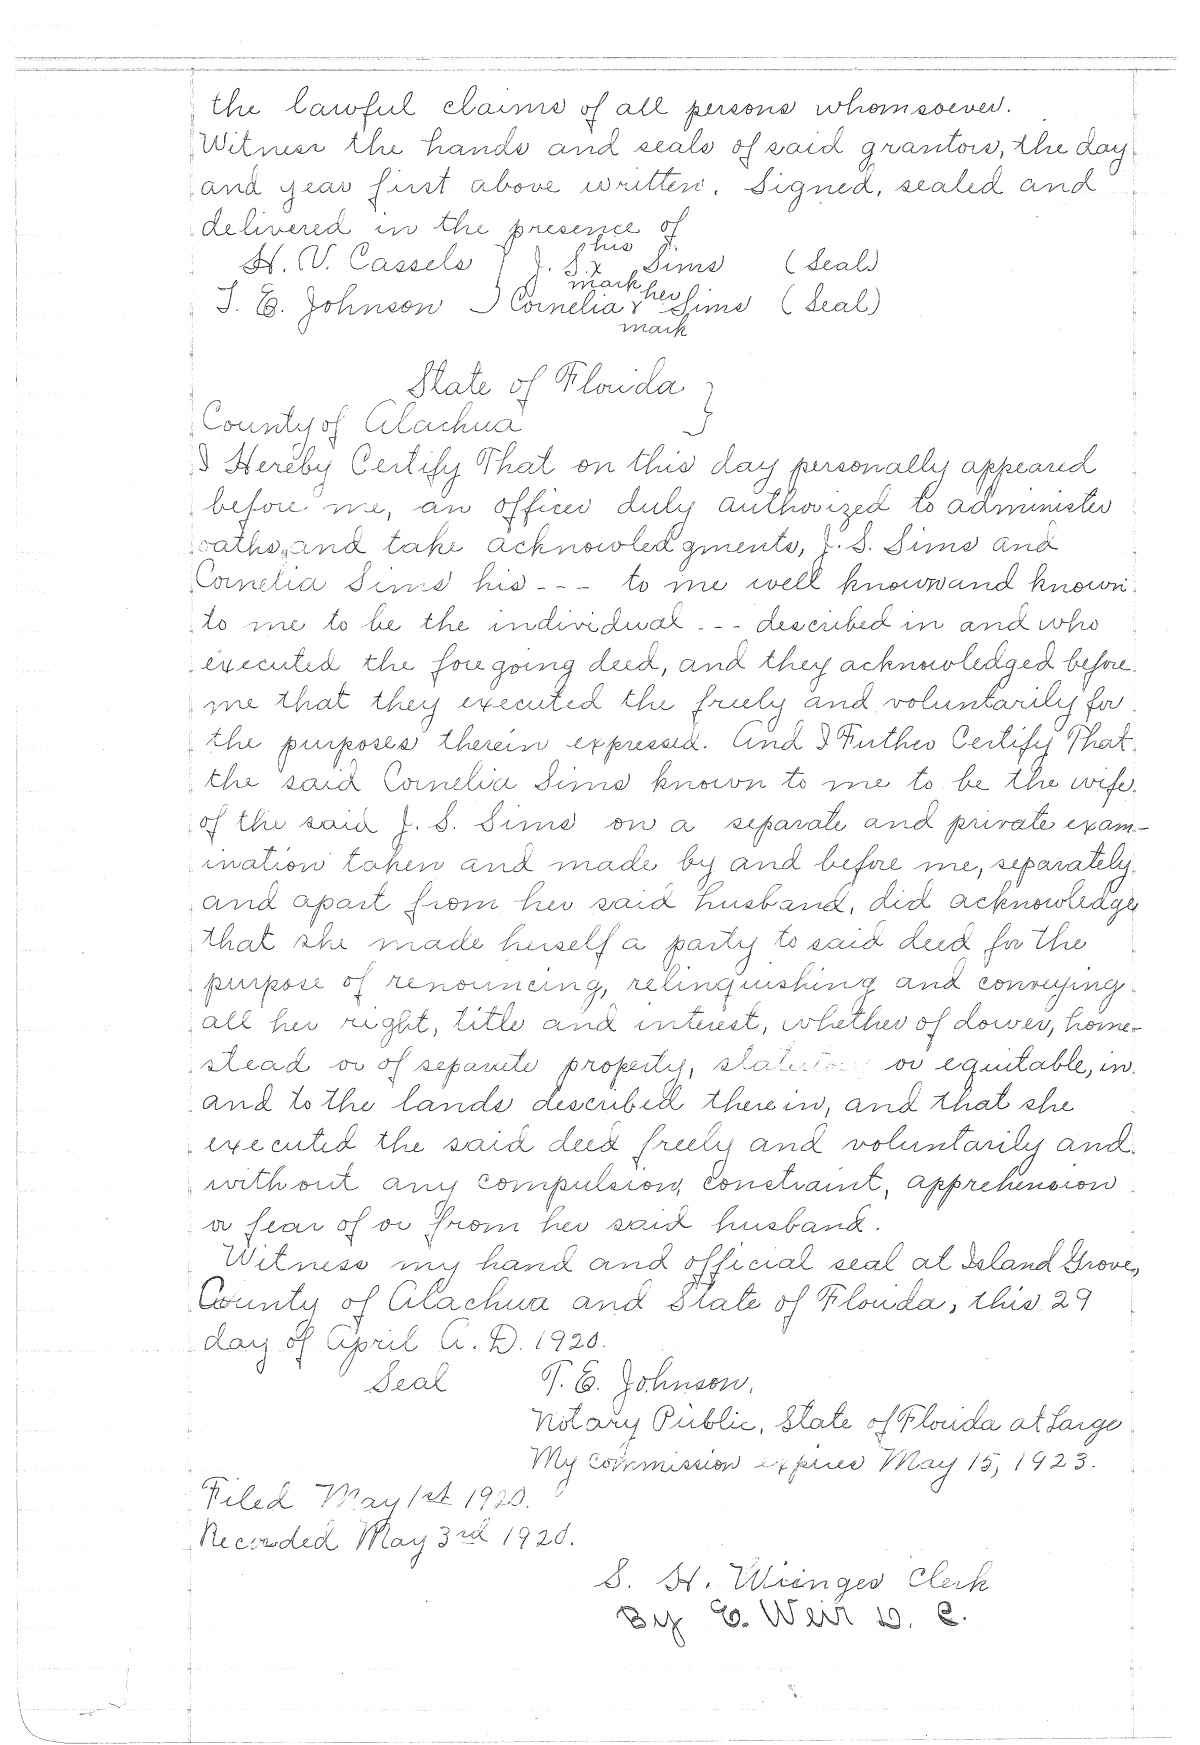 the lawful claims of all persons whomsoever.
Witness the hands and seals of said grantors, the day
and year first above written. Signed, sealed and
delivered in the presence of
his
H. V. Cassels } J. S. x Sims (Seal)
mark her
T. E. Johnson } Cornelia x Sims (Seal)
mark
State of Florida }
County of Alachua
I Hereby Certify That on this day personally appeared
before me, an officer duly authorized to administer
oaths, and take acknowledgments, J. S. Sims and
Cornelia Sims his --- to me well known and known
to me to be the individual --- described in and who
executed the foregoing deed, and they acknowledged before
me that they executed the freely and voluntarily for
the purposes therein expressed. And I Futher Certify That
the said Cornelia Sims known to me to be the wife
of the said J. S. Sims on a separate and private exam-
ination taken and made by and before me, separately
and apart from her said husband, did acknowledge
that she made herself a party to said deed for the
purpose of renouncing, relinquishing and conveying
all her right, title and interest, whether of dower, home-
stead or of separate property, statutory or equitable, in
and to the lands described therein, and that she
executed the said deed freely and voluntarily and
without any compulsion, constraint, apprehension
or fear of or from her said husband.
Witness my hand and official seal at Island Grove,
County of Alachua and State of Florida, this 29
day of April A. D. 1920.
Seal T. E. Johnson.
Notary Public, State of Florida at Large
My commission expires May 15, 1923.
Filed May 1st 1920.
Recorded May 3rd 1920.
S. H. Wienges Clerk
By E. Weir D. C.